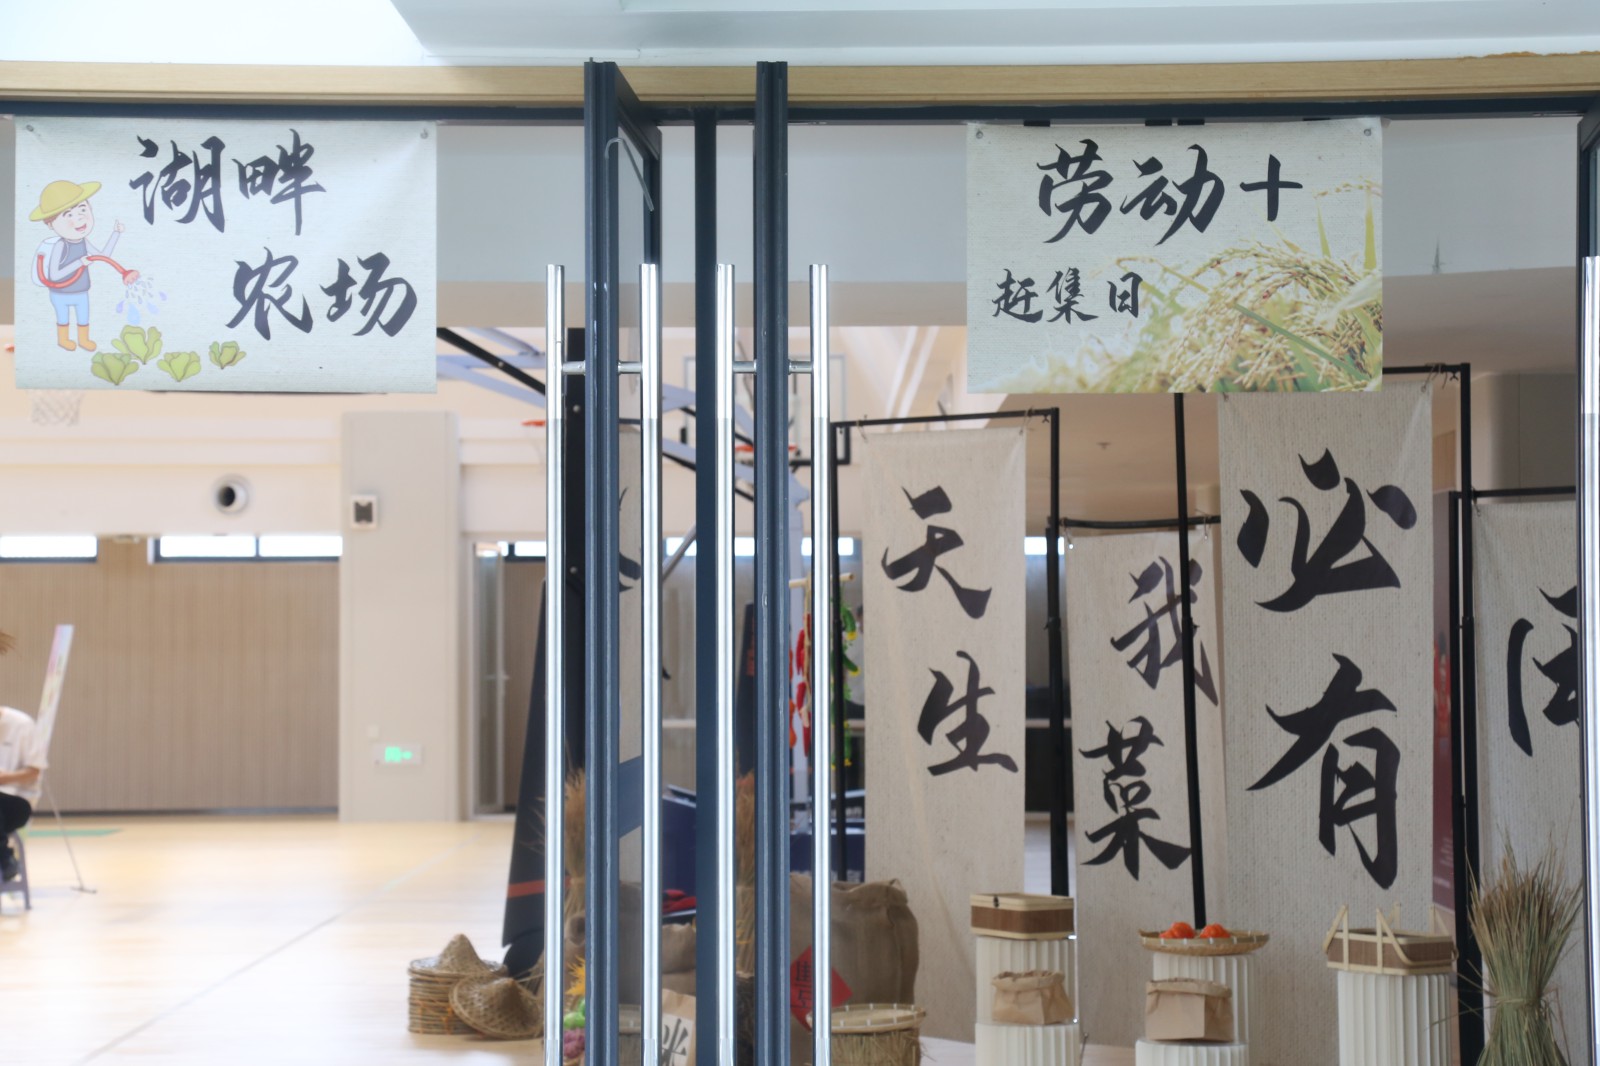 湖畔
农场
劳动+
赶集日
天生
我菜
必有
米